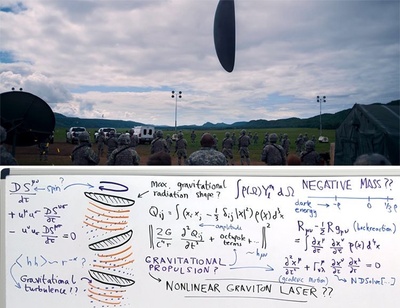 DS^μν/dτ ← spin? →
+ u^μ u_σ DS^νσ/dτ
- u^ν u_σ DS^μσ/dτ = 0
<hh> ~ r^-σ
Gravitational turbulence ??
max. gravitational radiation shape?
∫ρ(Ω) Y_l^m dΩ
Q_ij = ∫(x_i x_j - 1/3 δ_ij |x|²) ρ(x) d³x
amplitude
|| 2G/c⁴r d²Q_ij/dt² + octupole + terms ||²
GRAVITATIONAL PROPULSION?
NONLINEAR GRAVITON LASER??
NEGATIVE MASS??
dark energy → -1 0 1/3 ρ
R_μν - 1/2 R g_μν (backreaction)
= ∫ dx^μ/dτ dx^ν/dτ ρ(x) d³x
d²x^μ/dτ² + Γ^μ_νλ dx^ν/dτ dx^λ/dτ = 0
(geodesic motion) → NDSolve[..]